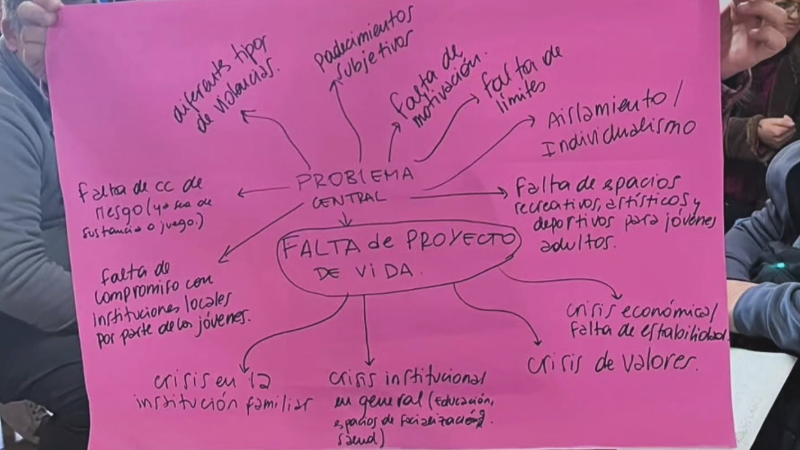 diferente tipos
de violencias.
padecimientos
subjetivos
falta de
motivación.
falta de
límites
Aislamiento/
Individualismo
PROBLEMA
CENTRAL
falta de cc de
riesgo (ya sea de
sustancia o juego.)
falta de espacios
recreativos, artísticos y
deportivos para jóvenes
adultos.
FALTA de PROYECTO
DE VIDA.
falta de
compromiso con
instituciones locales
por parte de los jóvenes.
crisis económica/
falta de estabilidad.
crisis de valores.
crisis en la
institución familiar
crisis institucional
en general (Educación,
espacios de socialización y
salud)